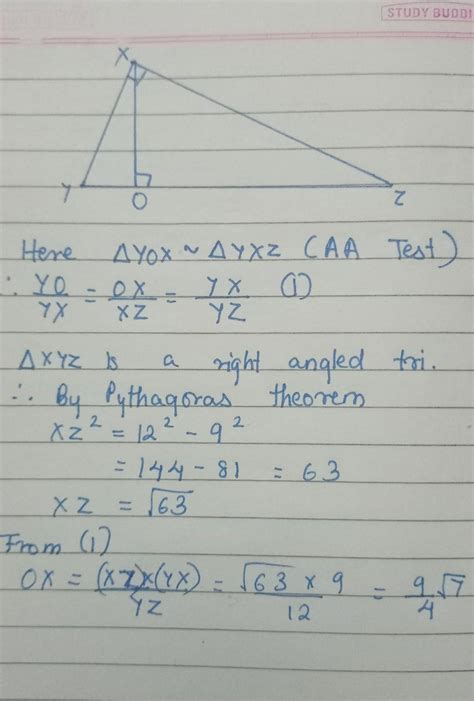 STUDY BUDDI
X
Y O Z
Here ΔYOX ~ ΔYXZ (AA Test)
∴ YO/YX = OX/XZ = YX/YZ (1)
ΔXYZ is a right angled tri.
∴ By Pythagoras theorem
XZ² = 12² - 9²
= 144 - 81 = 63
XZ = √63
From (1)
OX = (XZ)x(YX)/YZ = √63 x 9/12 = 9/4 √7